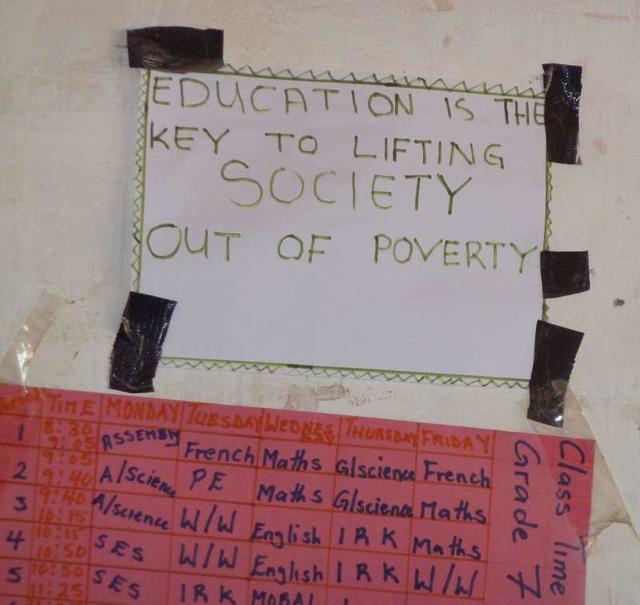 EDUCATION IS THE
KEY TO LIFTING
SOCIETY
OUT OF POVERTY
TIME MONDAY TUESDAY WEDNESDAY THURSDAY FRIDAY
1 8:30 9:05 ASSEMBLY French Maths G/science French
2 9:05 9:40 A/Science PE Maths G/science Maths
3 9:40 10:15 A/science W/W English I R K Maths
4 10:15 10:50 SES W/W English I R K W/W
5 10:50 11:25 SES I R K MORAL
Class Time
Grade 7